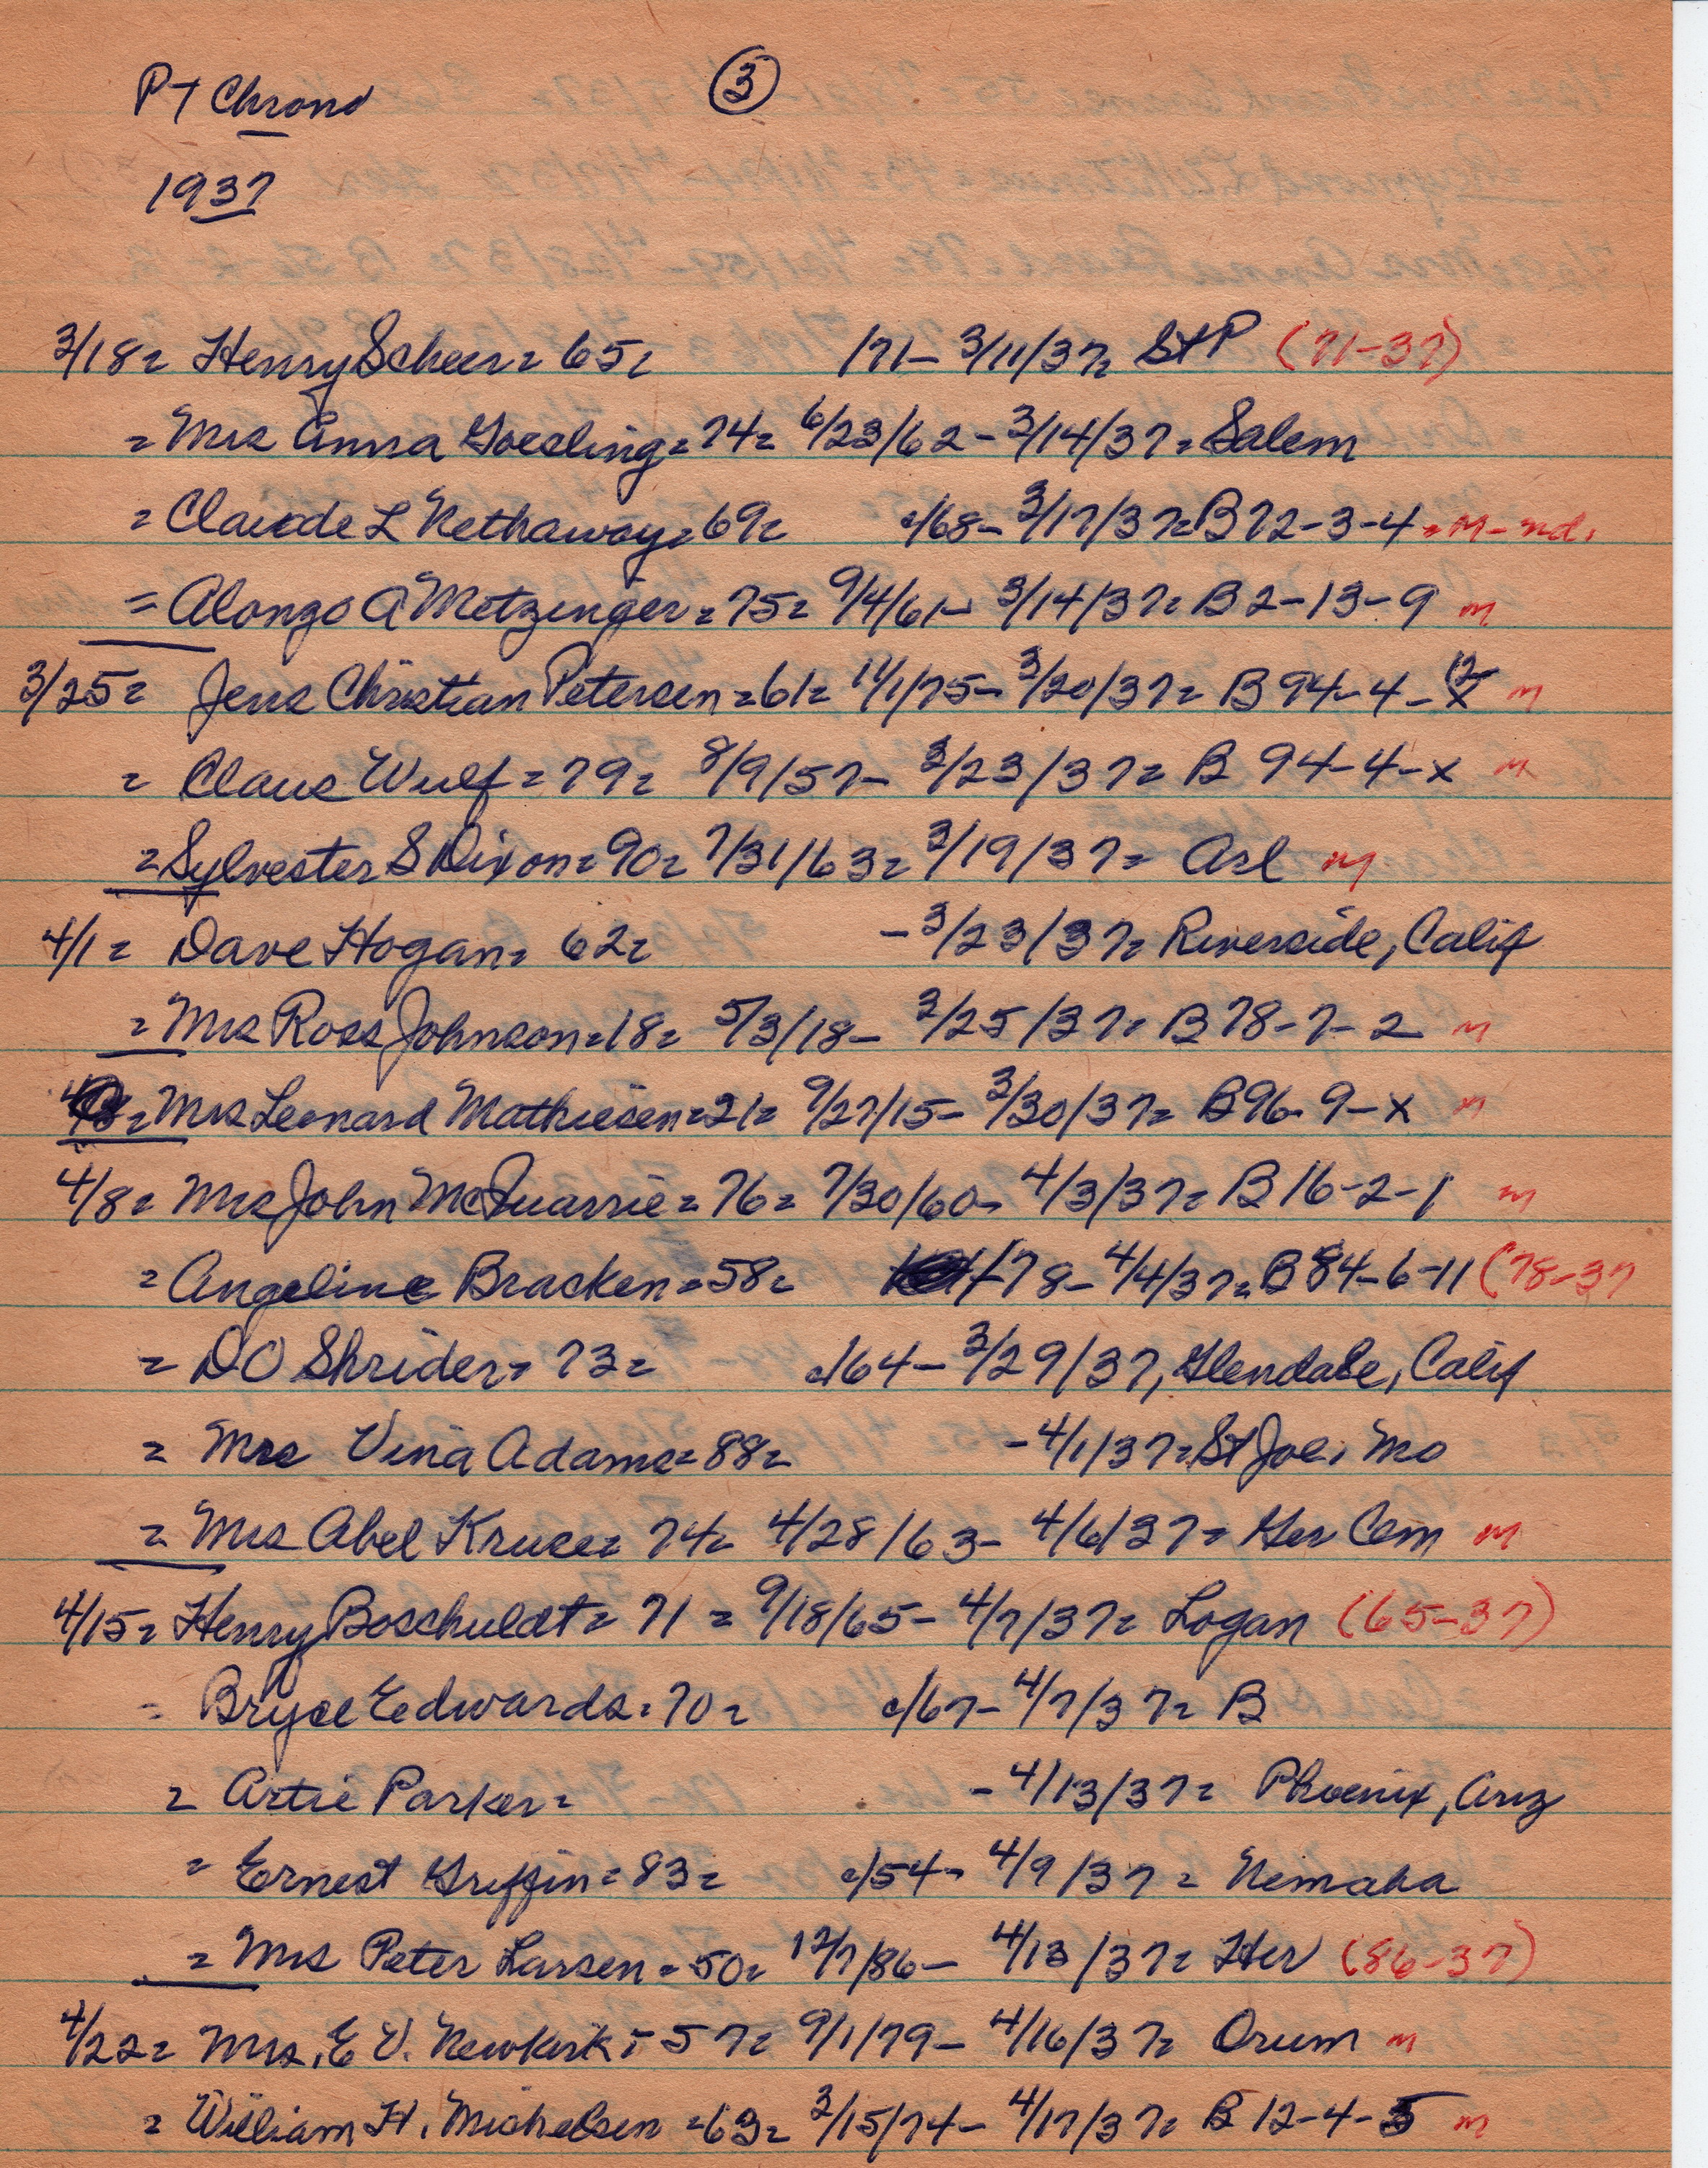 PT Chrono ③
1937
3/18= Henry Scheer= 65= /71- 3/11/37= St P (71-37)
= Mrs Anna Goesling= 74= 6/23/62-3/14/37= Salem
= Claude L Nethaway= 69= c/68- 3/17/37= B 72-3-4 = M-nd.
= Alonzo A Metzinger= 75= 9/4/61- 3/14/37= B 2-13-9 m
3/25= Jens Christian Petersen=61= 11/1/75- 3/20/37= B 94-4-12 m
= Claus Wulf= 79= 8/9/57- 3/23/37= B 94-4-x m
= Sylvester S Dixon= 90= 7/31/63= 3/19/37= Arl m
4/1= Dave Hogan= 62= -3/23/37= Riverside, Calif
= Mrs Ross Johnson=18= 5/3/18- 3/25/37= B 78-7-2 m
= Mrs Leonard Mathiesen=21= 9/27/15- 3/30/37= B96-9-x m
4/8= Mrs John McQuarrie= 76= 7/30/60- 4/3/37= B 16-2-1 m
= Angeline Bracken= 58= /78- 4/4/37= B 84-6-11 (78-37
= DO Shrider= 73= c/64- 3/29/37, Glendale, Calif
= Mrs Vina Adams= 88= -4/1/37= St Joe, Mo
= Mrs Abel Kruse= 74= 4/28/63- 4/6/37= Ger Cem m
4/15= Henry Boschuldt= 71 = 9/18/65- 4/7/37= Logan (65-37)
= Bryce Edwards= 70= c/67- 4/7/37= B
= Artie Parker= -4/13/37= Phoenix, Ariz
= Ernest Griffin= 83= c/54- 4/9/37= Nemaha
= Mrs Peter Larsen= 50= 12/7/86- 4/13/37= Her (86-37)
4/22= Mrs. E V. Newkirk= 57= 9/1/79- 4/16/37= Orum m
= William H. Michelsen =63= 2/15/74- 4/17/37= B 12-4-5 m